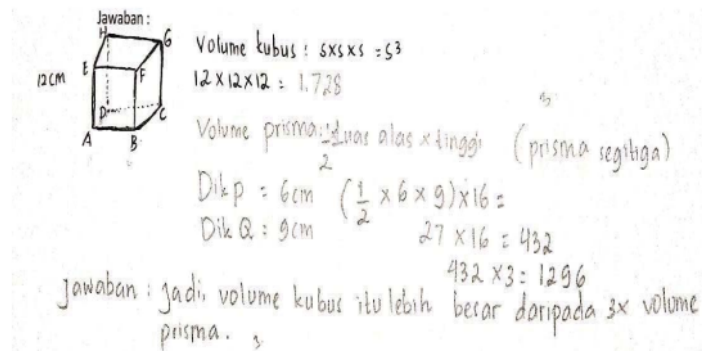 Jawaban :
H G
Volume kubus : s×s×s = s³
12 cm E F
12 × 12 × 12 = 1.728
D C
A B
Volume prisma : 1/2 luas alas × tinggi (prisma segitiga)
Dik P = 6cm (1/2 × 6 × 9) × 16 =
Dik Q : 9cm 27 × 16 = 432
432 × 3 = 1296
Jawaban : Jadi, volume kubus itu lebih besar daripada 3× volume
prisma.